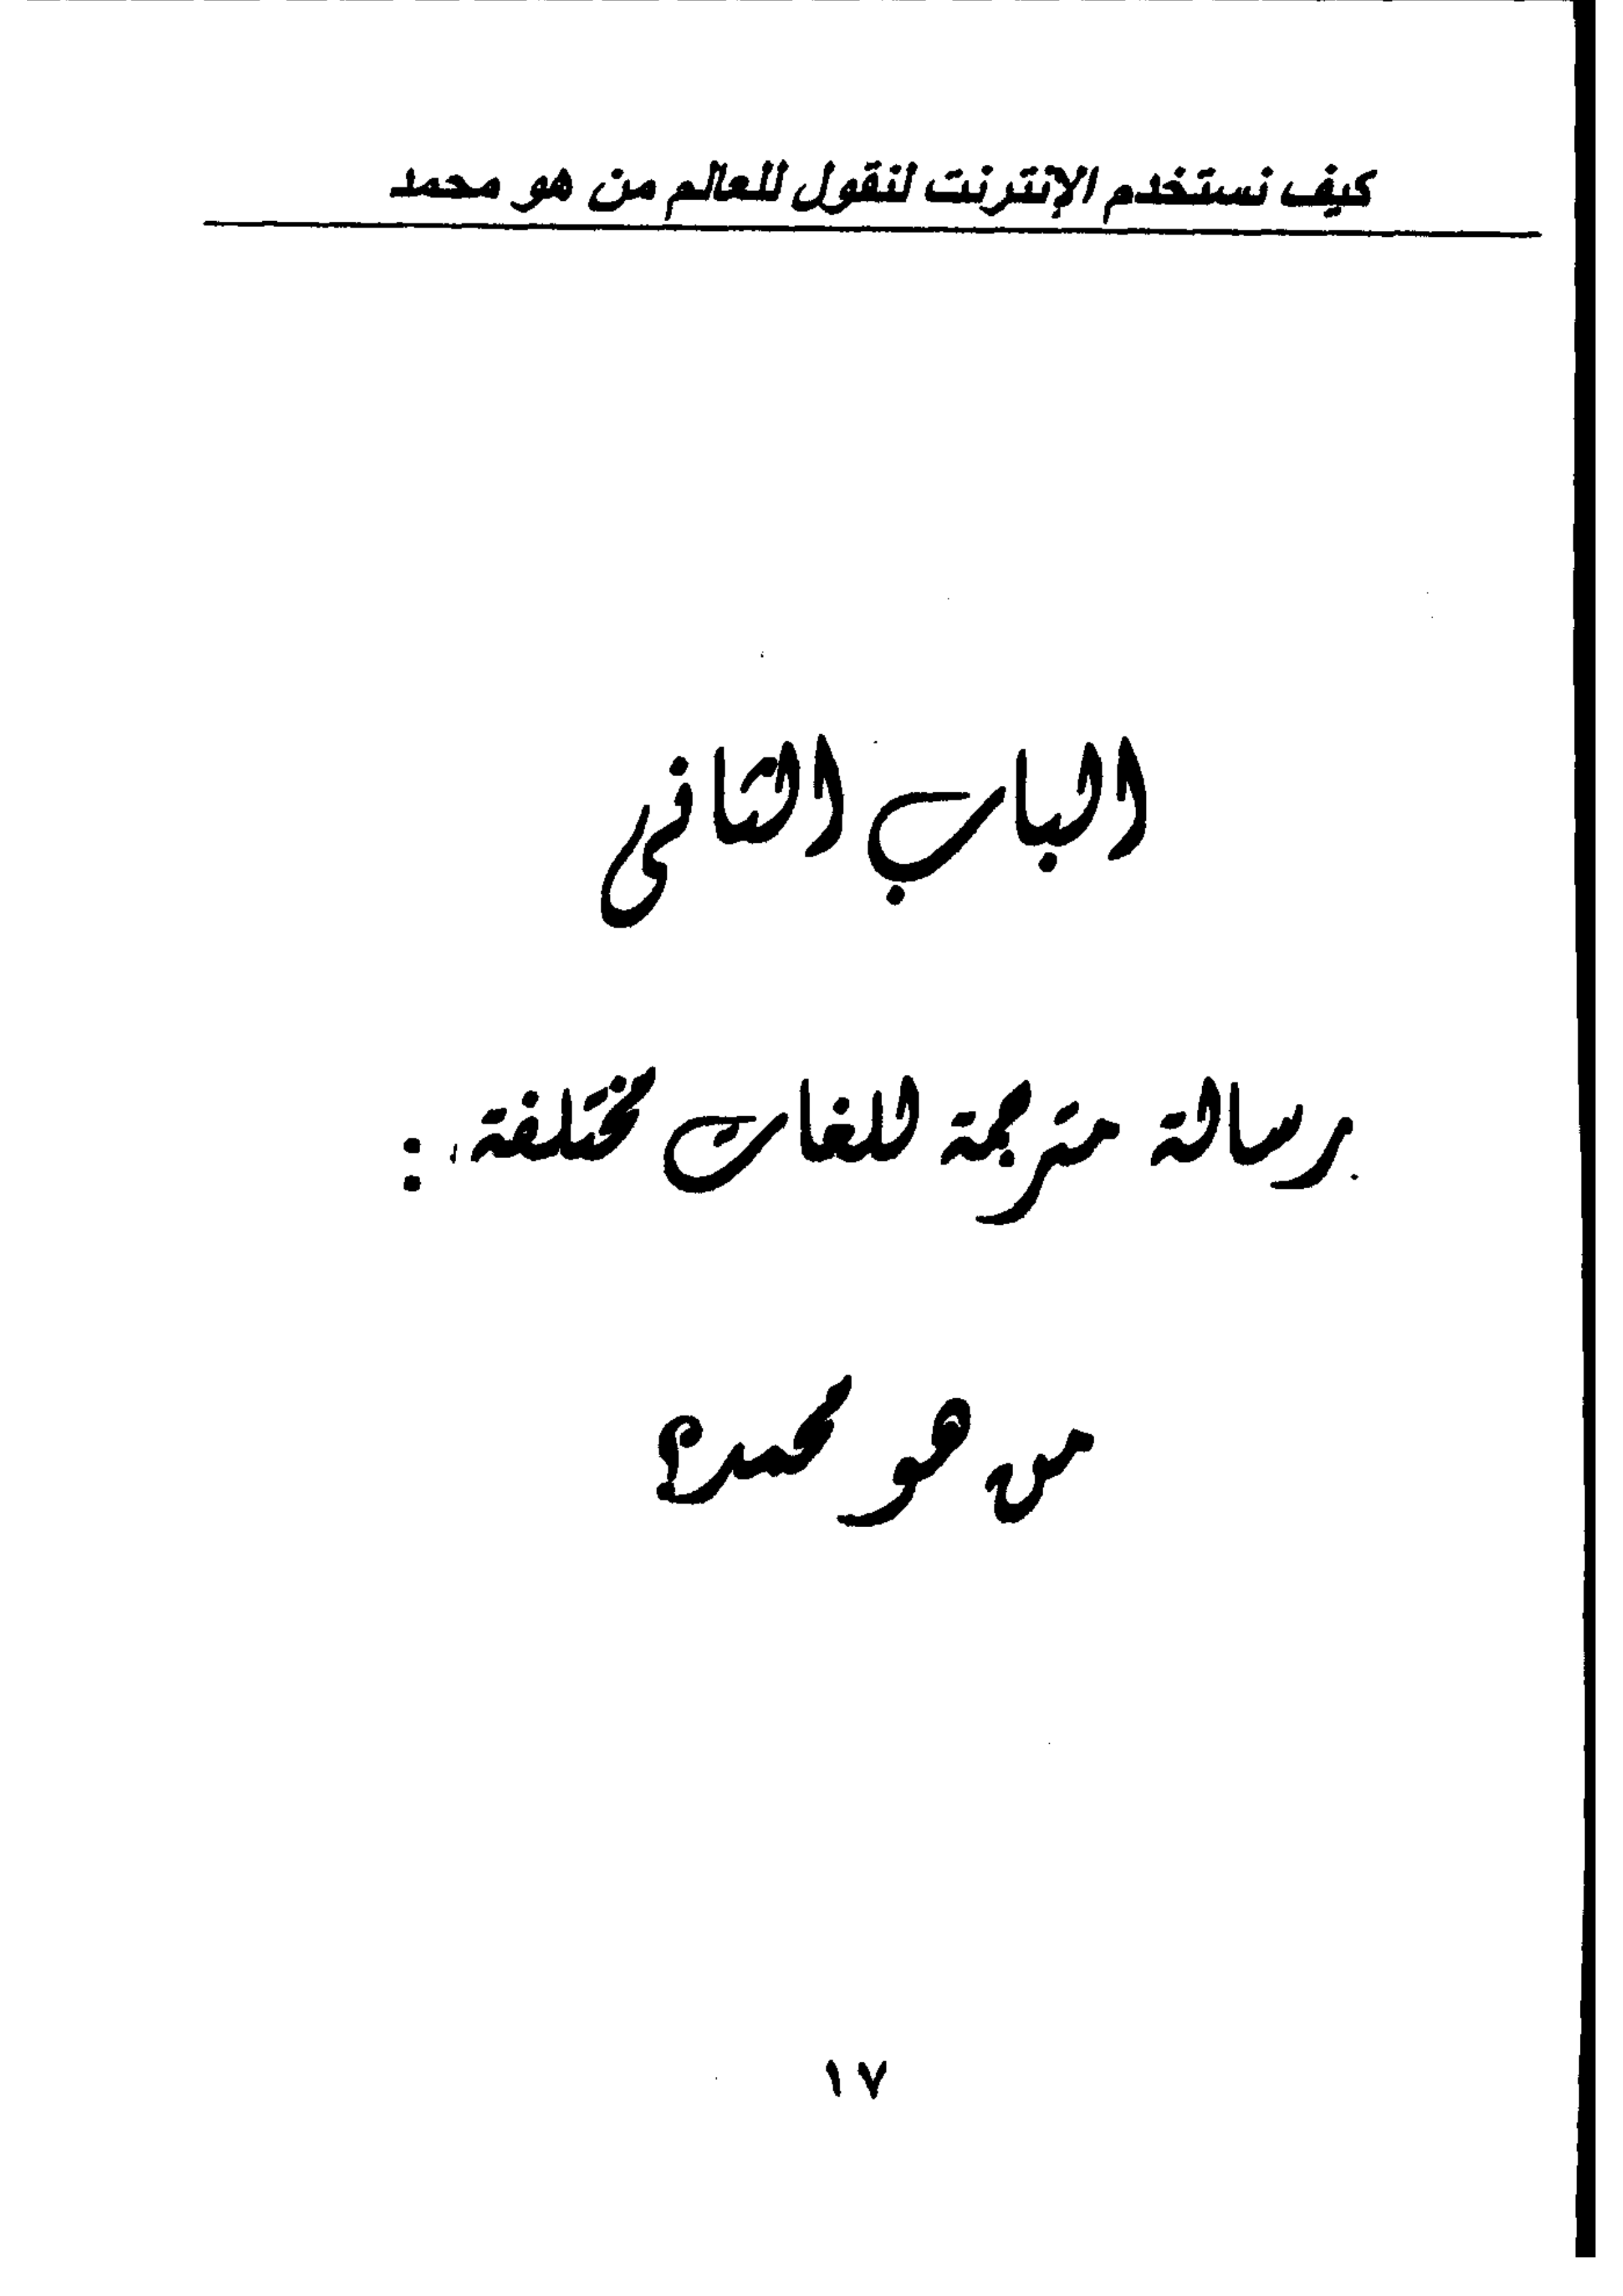 كيف نستخدم الإنترنت لنقول للعالم من هو محمد
الباب الثانى
رسالة مترجمة للغات مختلفة :
من هو محمد؟
١٧